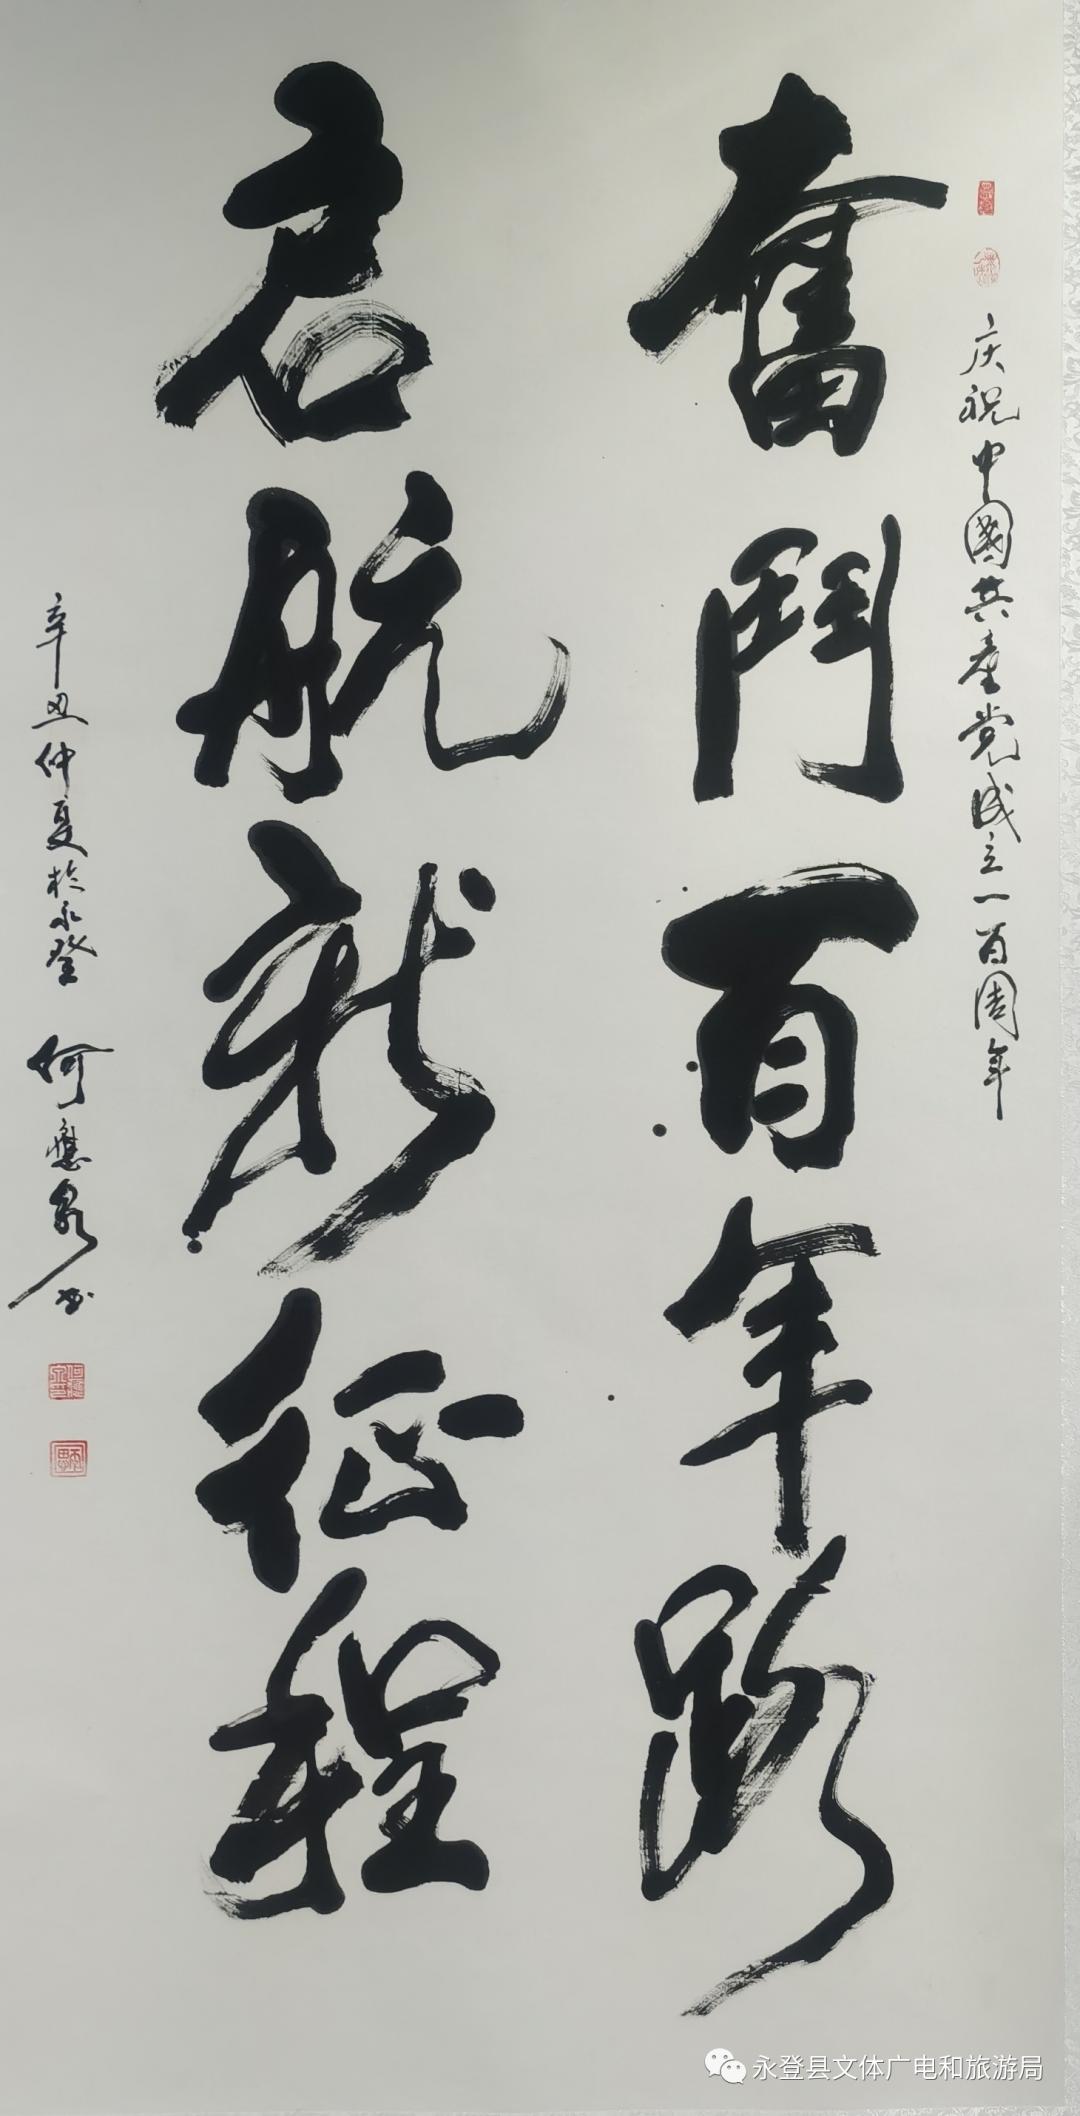 庆祝中國共產党成立一百周年
奮鬥百年路
启航新征程
辛丑仲夏於永登 何應泉书
永登县文体广电和旅游局